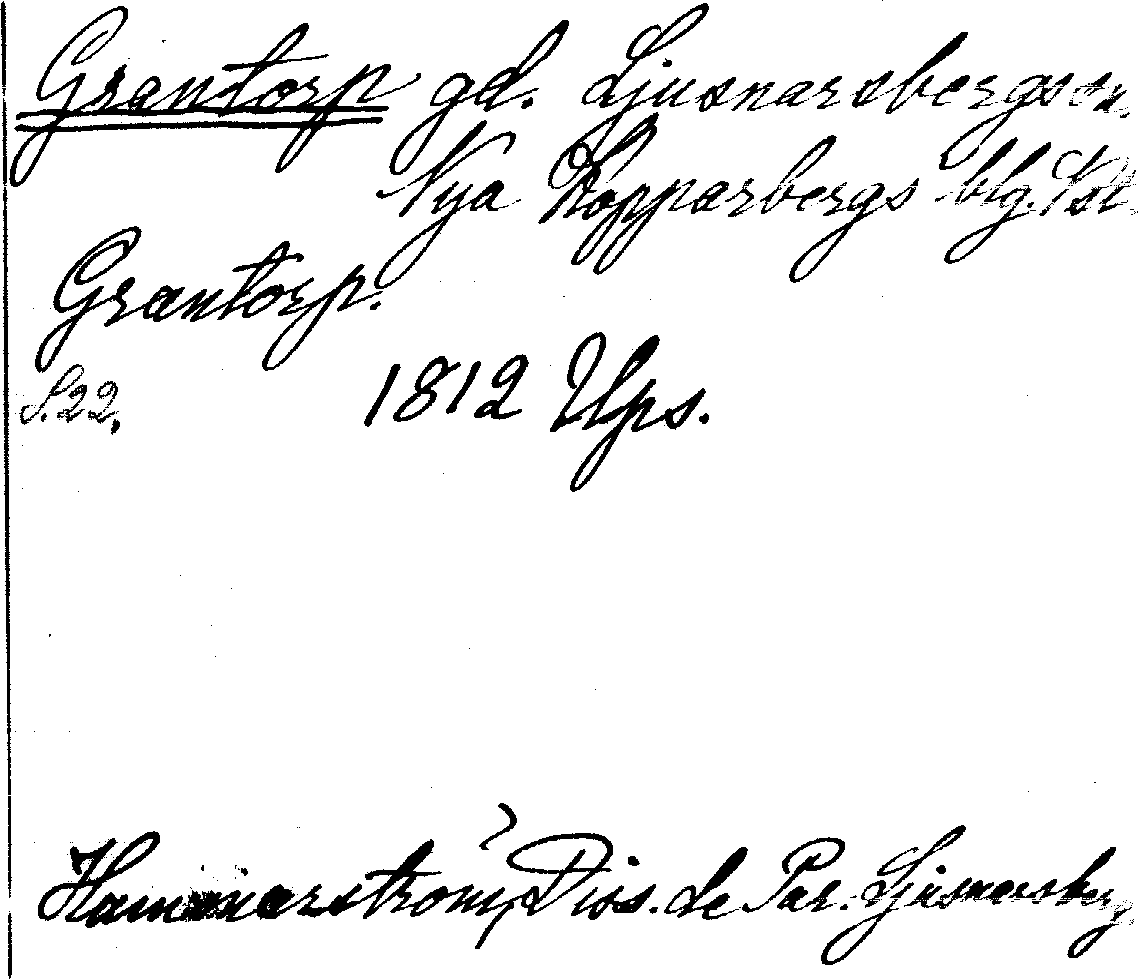 Grantorp gd. Ljusnarsbergs sn.
Nya Kopparbergs blg. Vst.
Grantorp.
S. 22. 1812 Ups.
Hammarström, Diss. de Par. Ljusnarsberg.